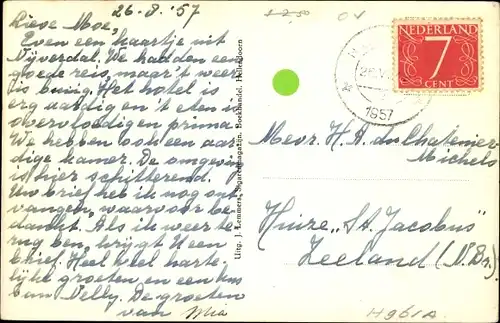 26-8-'57
Lieve Moe.
Even een kaartje uit
Nijverdal. We hadden een
goede reis, maar 't weer
is buiig. Het hotel is
erg aardig en 't eten is
overvloedig en prima.
We hebben ook een aar-
dige kamer. De omgeving
is hier schitterend.
Uw brief heb ik nog ont-
vangen, waarvoor be-
dankt. Als ik weer te-
rug ben, krijgt U een
brief. Heel veel harte-
lijke groeten, en een kus
van Nelly. De groeten
van Mia
Uitg. J. Lemmers, Sigarenmagazijn, Boekhandel, Hellendoorn
NEDERLAND
7
CENT
1957
Mevr. H. A. du Chatenier
Michels
Huize „St. Jacobus"
Zeeland (N.Br.)
H961A